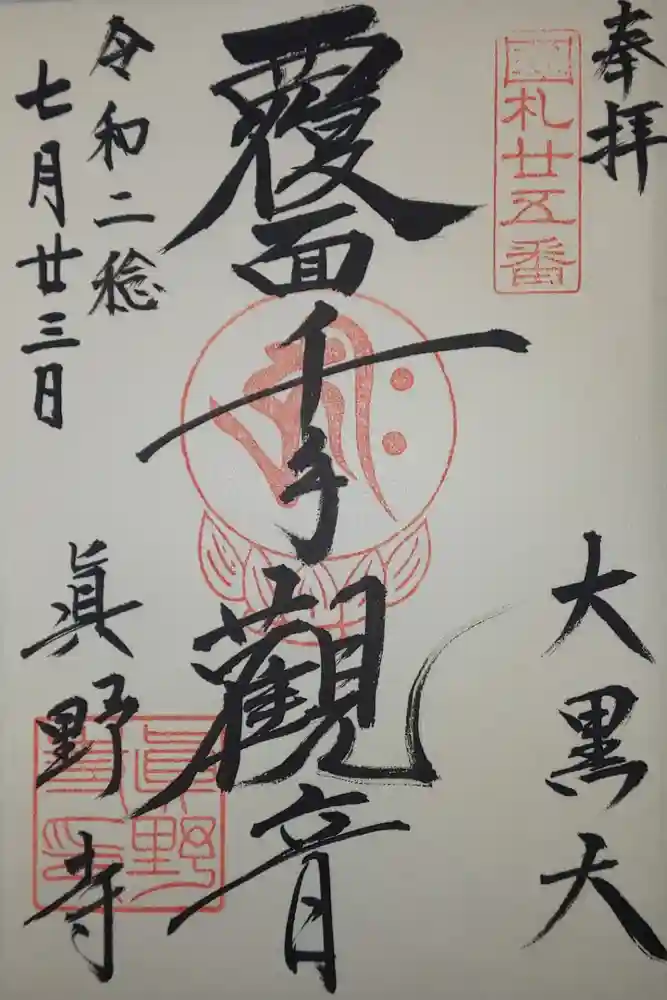 奉拝
大黒天
國札廿五番
覆面千手觀音
令和二稔
七月廿三日
眞野寺
眞野寺印